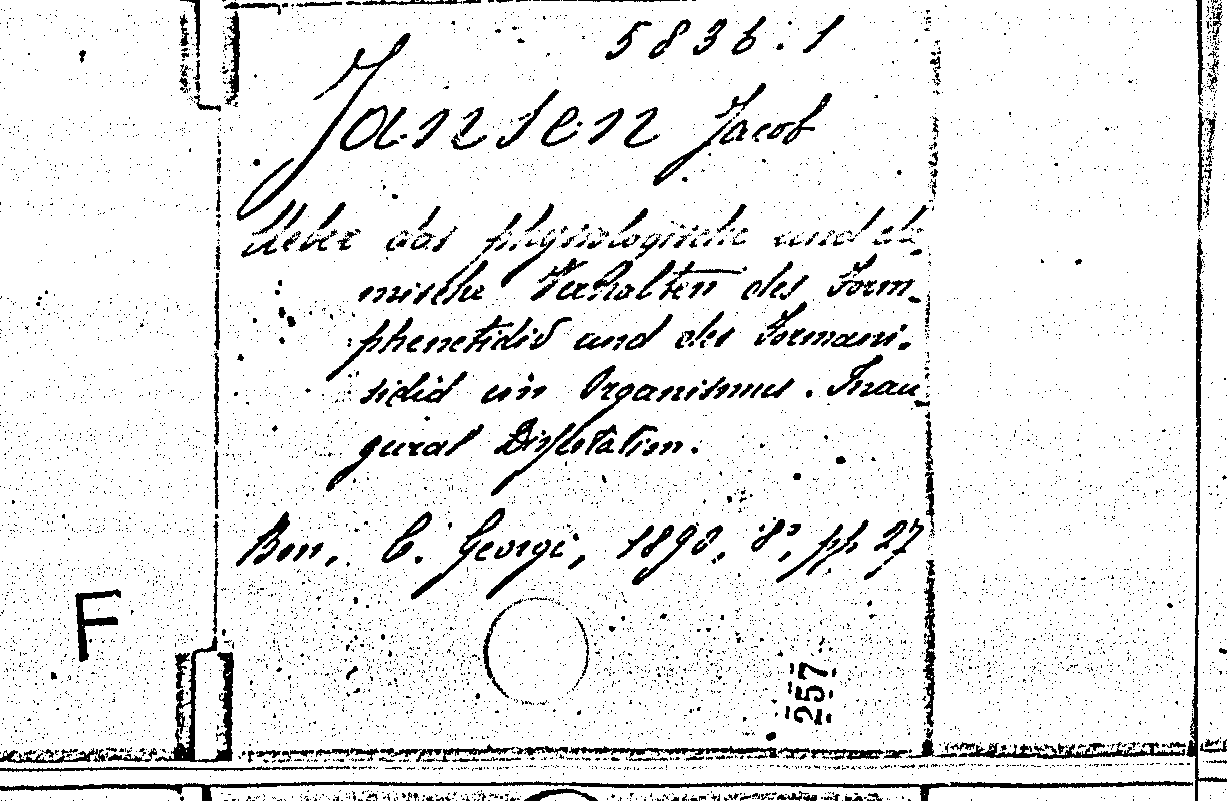 5836.1
Jansen Jacob
Ueber das physiologische und che-
mische Verhalten des Form-
phenetidid und des Formani-
sidid im Organismus. Inau-
gural Dissertation.
Bon, C. Georgi, 1890, 8°, pp 27
F
257